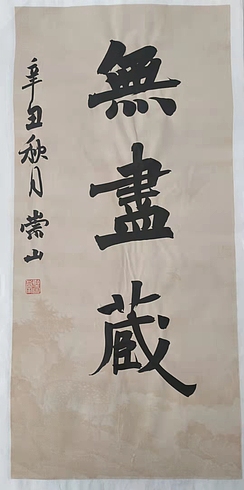 無盡蔵
辛丑秋月崇山